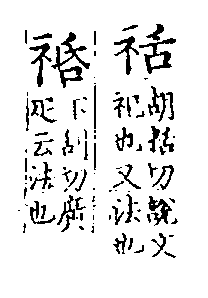 祜
胡括切說文
祀也又法也
䄆
下刮切廣
疋云法也